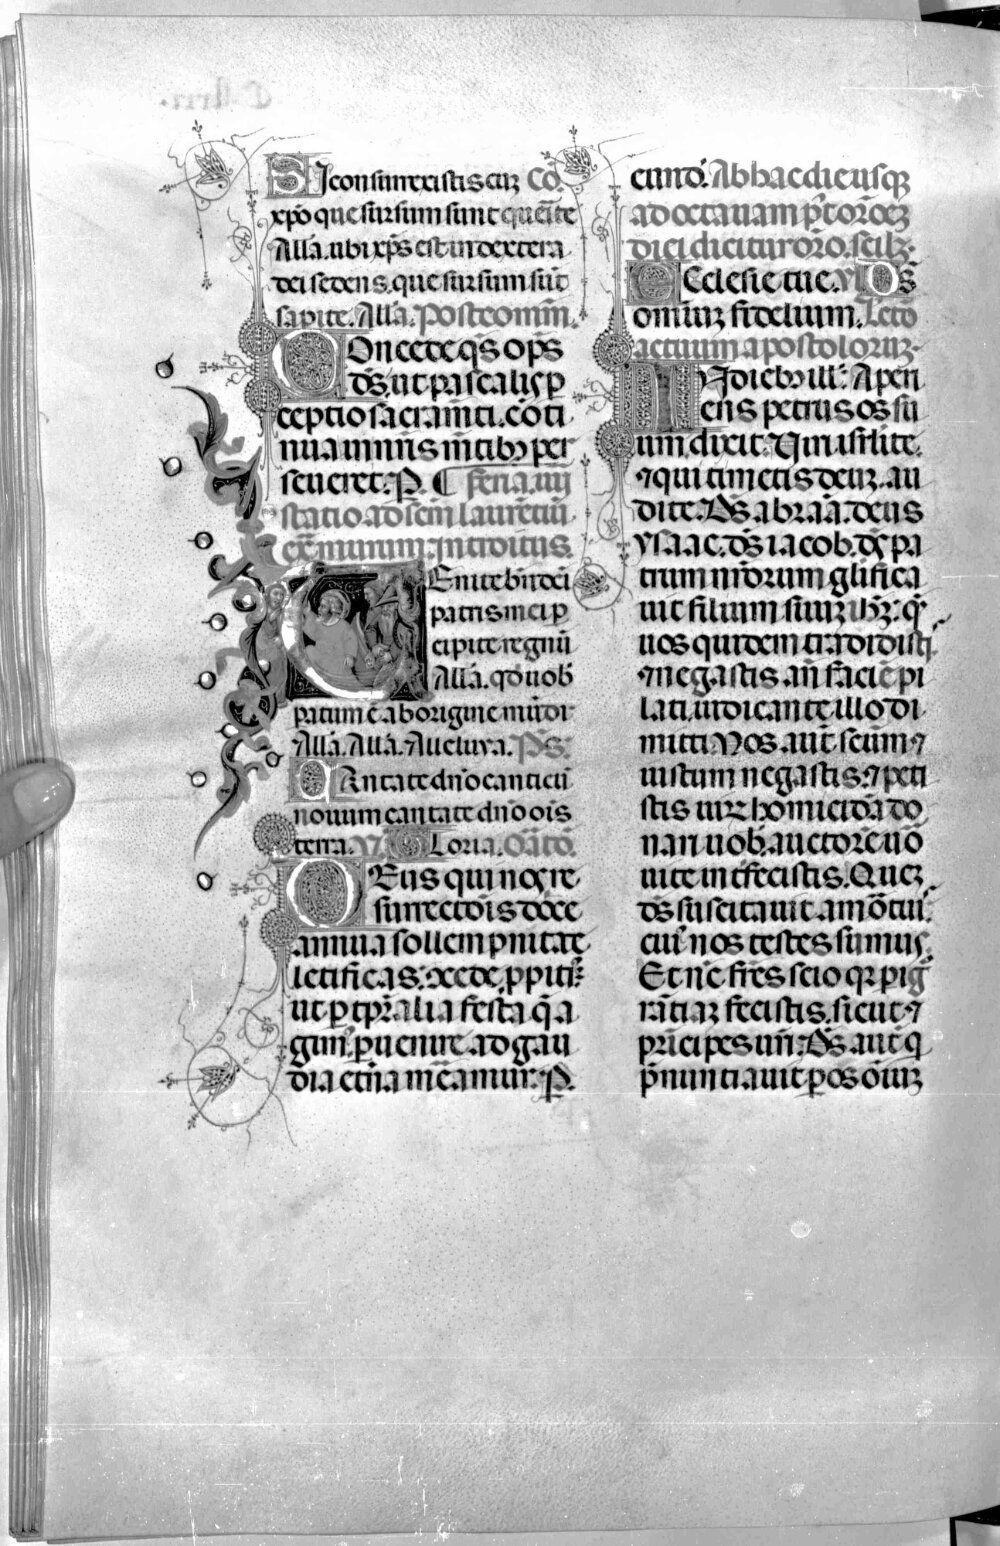 SI consurrexistis cuꝫ Co.
xp̄o que sursum sunt querite
Allā. ubi xp̄s est in dextera
dei sedens. que sursum sūt
sapite. Allā. Postcomūn.
COncede q̄s op̄s
ds̄. ut pascalis ꝑ
ceptio sacram̄ti. cōti
nua in nr̄is mētibꝫ per
seueret. P. ¶ feria. iiij
statio ad scm̄ laurētiū
ex̄ murum. Introitus.
VEnite bn̄dcī
patris mei ꝑ
cipite regnū
Allā. qd̄ uob̄
patum ē ab origine mūdi
Allā. Allā. Alleluya. Ps̄.
CAntate dn̄o canticū
nouum cantate dn̄o oīs
terra. V. Gloria. Orātō.
DEus qui nos re
surrectōis dn̄ce
annua sollempnitate
letificas. ꝯcede ꝓpiti⁹
ut ꝑ tp̄ralia festa q̄ a
gim⁹. ꝑuenire ad gau
dia etn̄a mēamur. P.
cund. Ab hac die usqꝫ
ad octauam p̄t orōeꝫ
diei dicitur orō. scilꝫ.
ECclesie tue. ⁊ Ds̄
omniuꝫ fidelium. Lectō
actuum apostoloruꝫ.
IN diebꝫ ill᷑. Aperi
ens petrus os su
um dixit. Uiri isrl̄ite.
⁊ qui timetis deuꝫ. au
dite. Ds̄ abraā. deus
ysaac. ds̄ iacob. ds̄ pa
trum nr̄orum glīfica
uit filium suuꝫ ih̄ꝫ. q̄
uos quidem tradidisti.
⁊ negastis. an̄ faciē pi
lati. iudicante illo di
mitti. Uos aut̄ scūm ⁊
iustum negastis. ⁊ peti
stis uirꝫ homicidā do
nari uob̄. auctorē uō
uite int̄fecistis. Quez
ds̄ suscitauit a mōtui.
cui⁹ nos testes sumus.
Et nc̄ fr̄es scio qꝛ ꝑ ig
rātiaꝫ fecistis. sicut ⁊
prīcipes ur̄i. Ds̄ aut̄ q̄
p̄nuntiauit ꝑ os oīuꝫ